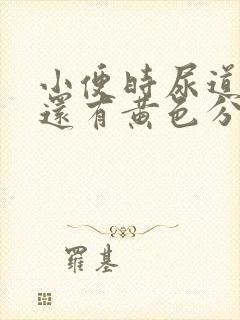 小便時尿道
還有黃色分
羅基